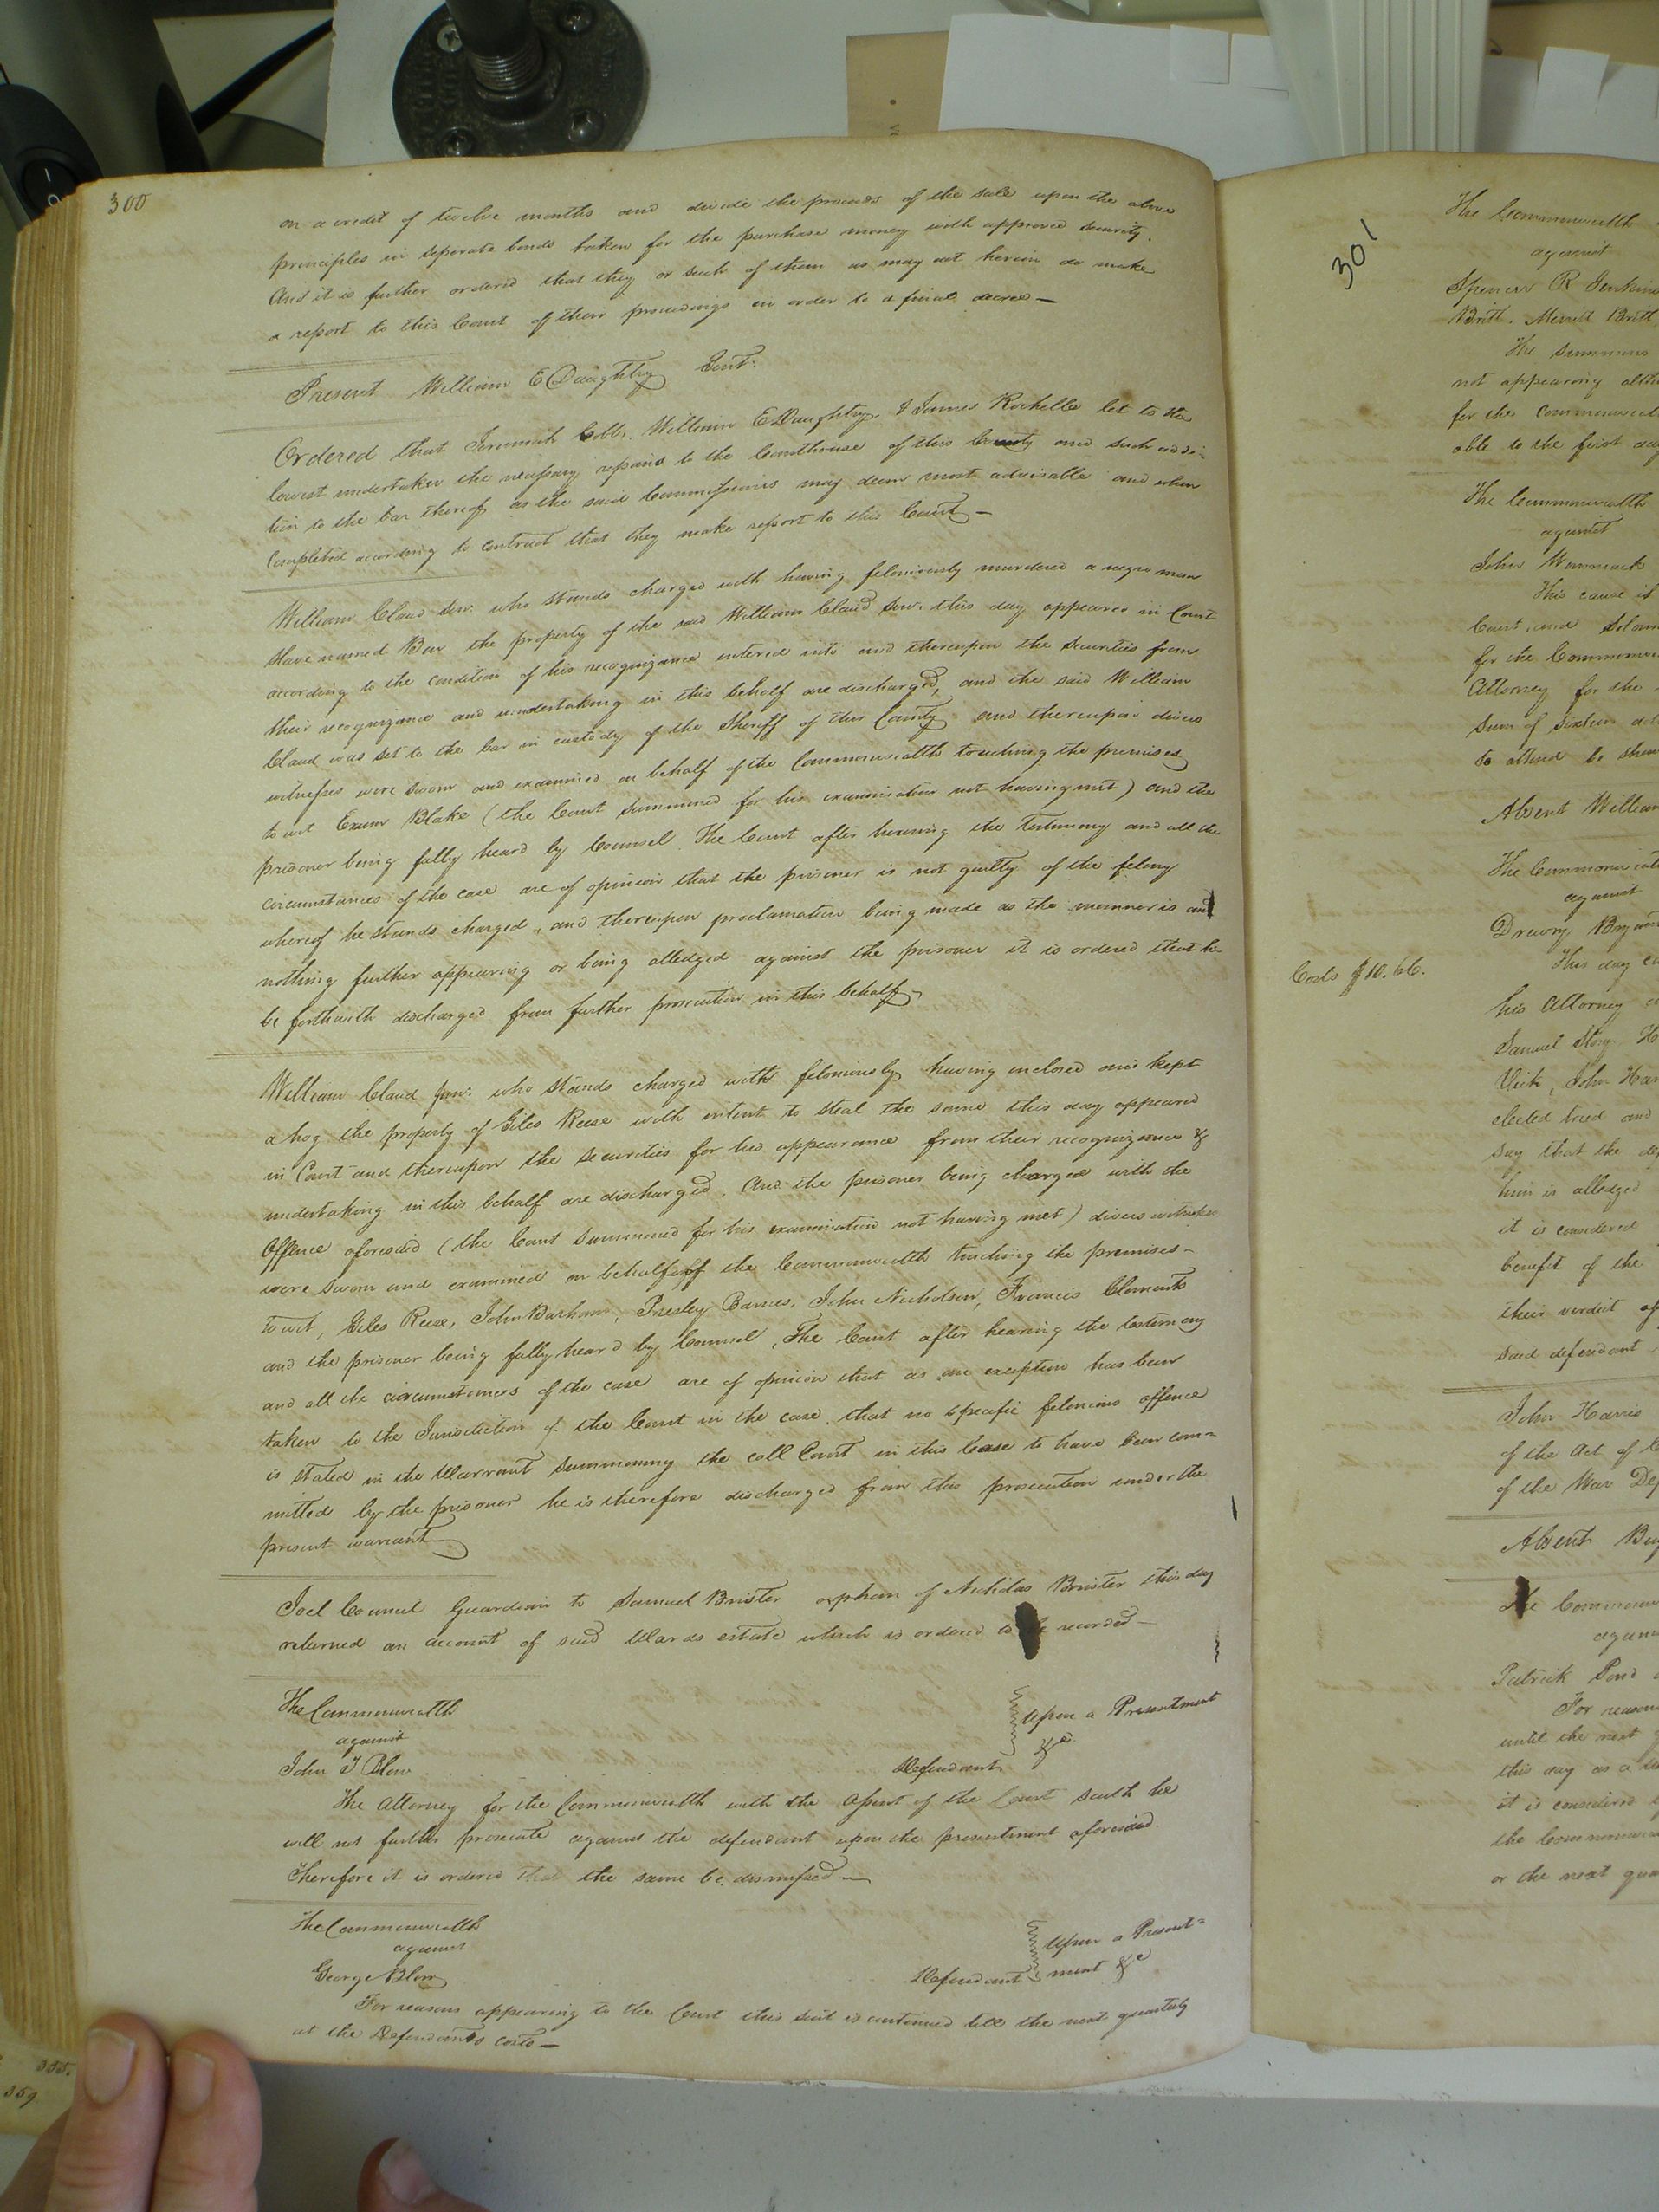 300
on a credit of twelve months and divide the proceeds of the sale upon the above
principles in seperate bonds taken for the purchase money with approved security.
And it is further ordered that they or such of them as may act herein do make
a report to this Court of their proceedings in order to a final decree—
Present William E Daughtry Gent:
Ordered that Jeremiah Cobb, William E Daughtry & James Rochelle let to the
lowest undertaker the necessary repairs to the Courthouse of this County and such addi-
tion to the bar thereof as the said Commissioners may deem most advisable and when
Completed according to contract that they make report to this Court—
William Claud Senr. who stands charged with having feloniously murdered a negro man
slave named Ben the property of the said William Claud Senr. this day appeared in Court
according to the condition of his recognizance entered into and thereupon the securities from
their recognizance and undertaking in this behalf are discharged, and the said William
Claud was set to the bar in custody of the Sheriff of this County and thereupon divers
witnesses were sworn and examined on behalf of the Commonwealth touching the premises
to wit Exum Blake (the Court summoned for his examination not having met) and the
prisoner being fully heard by Counsel. The Court after hearing the Testimony and all the
circumstances of the case are of opinion that the prisoner is not guilty of the felony
whereof he stands charged, and thereupon proclamation being made as the manner is and
nothing further appearing or being alledged against the prisoner it is ordered that he
be forthwith discharged from further prosecution in this behalf,
William Claud Junr. who stands charged with feloniously having inclosed and kept
a hog the property of Giles Reese with intent to steal the same this day appeared
in Court and thereupon the securities for his appearance from their recognizance &
undertaking in this behalf are discharged. And the prisoner being charged with the
Offence aforesaid (the Court summoned for his examination not having met) divers witnesses
were sworn and examined on behalf of the Commonwealth touching the premises—
to wit, Giles Reese, John Barham, Presley Barnes, John Nicholson, Francis Clements
and the prisoner being fully heard by Counsel, The Court after hearing the testimony
and all the circumstances of the case are of opinion that as an exception has been
taken to the Jurisdiction of the Court in the case, that no specific felonious offence
is stated in the Warrant summoning the call Court in this Case to have been com=
mitted by the prisoner he is therefore discharged from this prosecution under the
present warrant
Joel Council Guardian to Samuel Brister orphan of Nicholas Brister this day
returned an account of said Wards estate which is ordered to recorded—
The Commonwealth
against
John T Blow Defendant
Upon a Presentment
&c.
The Attorney for the Commonwealth with the Assent of the Court saith he
will not further prosecute against the defendant upon the presentment aforesaid.
Therefore it is ordered that the same be dismissed—
The Commonwealth
against
George Blow Defendant
Upon a Present=
ment &c
For reasons appearing to the Court this suit is continued till the next quarterly
at the Defendants costs—
355.
359
301
The Commonwealth
against
Spencer R Jenkins
Britt. Merrit Britt
The summons
not appearing
for the Commonwealth
able to the first day
The Commonwealth
against
John Wommack
This cause is
Court and
for the Commonwealth
Attorney for the
Sum of Sixteen
to attend be
Absent William
The Commonwealth
against
Drewry Bryant
Costs $10.66.
This day
his Attorney
Samuel Story
Vick, John
elected tried and
say that the
him is alledged
it is considered
benefit of the
their verdict
said defendant
John Harris
of the Act of
of the War
Absent
The
against
Patrick Pond
For reasons
until the next
this day as a
it is considered
the Commonwealth
or the next